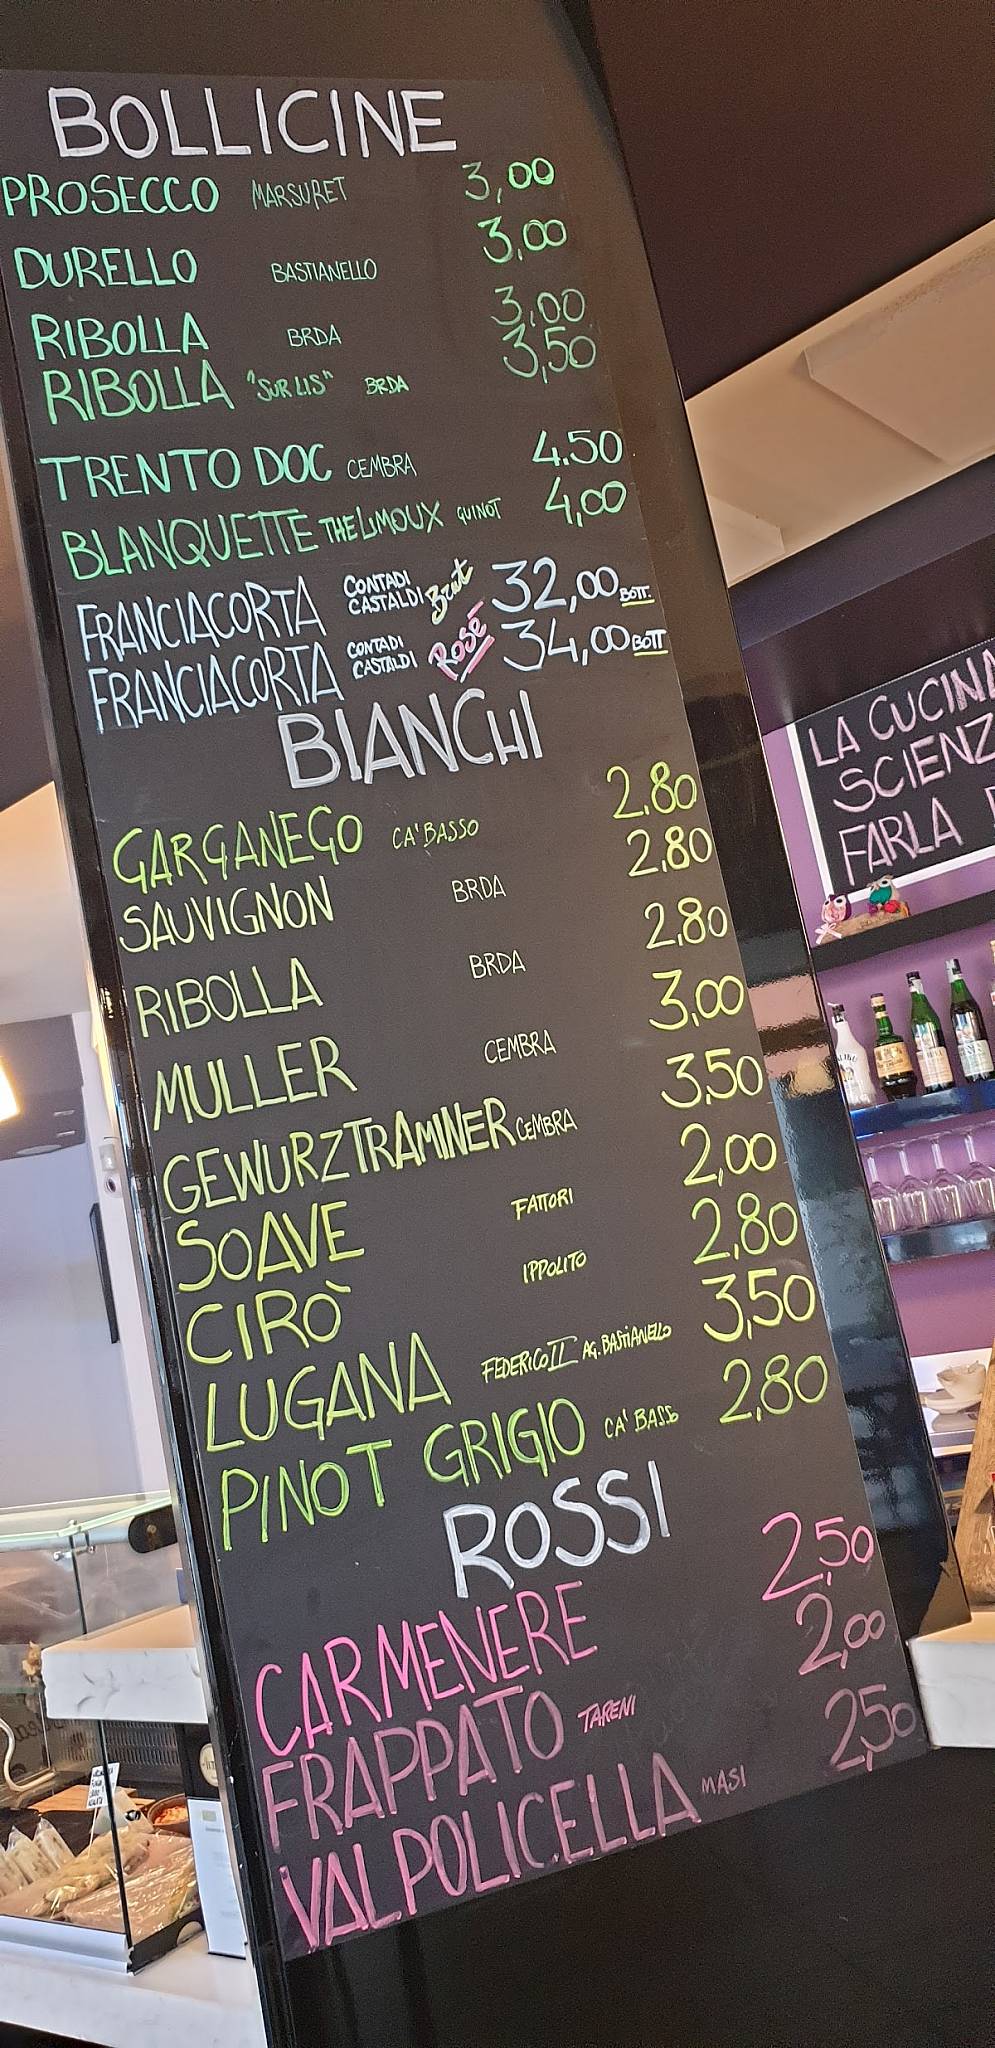 BOLLICINE
PROSECCO MARSURET 3,00
DURELLO BASTIANELLO 3,00
RIBOLLA BRDA 3,00
RIBOLLA "SUR LIS" BRDA 3,50
TRENTO DOC CEMBRA 4.50
BLANQUETTE THE LIMOUX GUINOT 4,00
FRANCIACORTA CONTADI CASTALDI Brut 32,00 BOTT.
FRANCIACORTA CONTADI CASTALDI ROSÉ 34,00 BOTT
BIANCHI
GARGANEGO CA' BASSO 2.80
SAUVIGNON BRDA 2.80
RIBOLLA BRDA 2,80
MULLER CEMBRA 3,00
GEWURZTRAMINER CEMBRA 3,50
SOAVE FATTORI 2,00
CIRÒ IPPOLITO 2,80
LUGANA FEDERICO II AG. BASTIANELLO 3,50
PINOT GRIGIO CA' BASSO 2,80
ROSSI
CARMENERE 2,50
FRAPPATO TARENI 2,00
VALPOLICELLA MASI 2,50
LA CUCINA
SCIENZ
FARLA